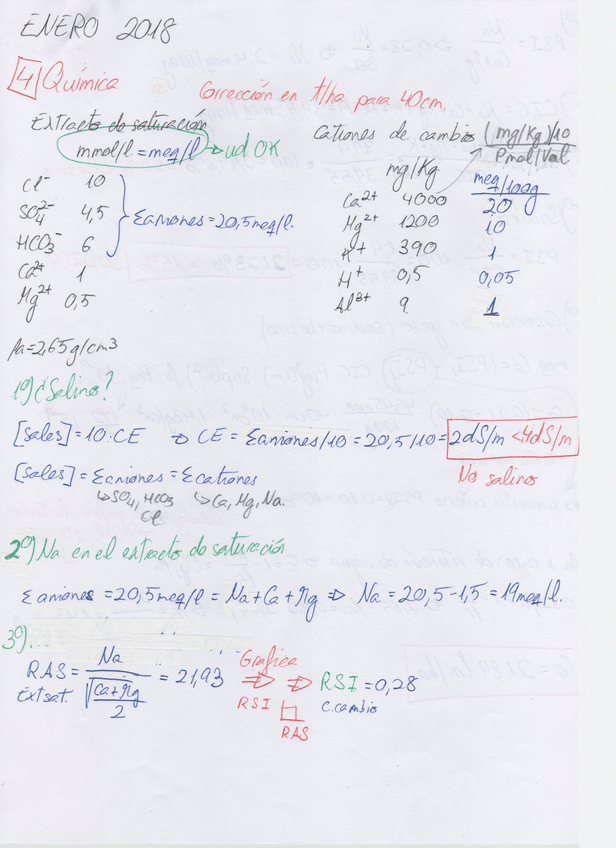 ENERO 2018
4 Química
Corrección en t/ha para 40cm.
Extracto de saturación
mmol/l = meq/l → ud OK
Cl⁻ 10
SO₄²⁻ 4,5
HCO₃⁻ 6
Ca²⁺ 1
Mg²⁺ 0,5
Σaniones = 20,5 meq/l.
Cationes de cambio (mg/Kg)/10
Pmol/Val
mg/Kg meq/100g
Ca²⁺ 4000 20
Mg²⁺ 1200 10
K⁺ 390 1
H⁺ 0,5 0,05
Al³⁺ 9 1
ρa=2,65 g/cm³
1º) ¿Salino?
[sales] = 10·CE ⇒ CE = Σaniones/10 = 20,5/10 = 2dS/m < 4dS/m
No salino
[sales] = Σaniones = Σcationes
↳ SO₄, HCO₃ ↳ Ca, Mg, Na.
Cl
2º) Na en el extracto de saturación
Σaniones = 20,5 meq/l = Na + Ca + Mg ⇒ Na = 20,5 - 1,5 = 19 meq/l.
3º).
RAS = Na / √(Ca+Mg / 2) = 21,93 ⇒ ⇒ RSI = 0,28
Ext sat.
Gráfica
RSI
RAS
C. cambio